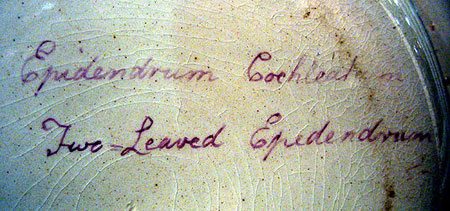 Epidendrum Cochleatum
Two=Leaved Epedendrum